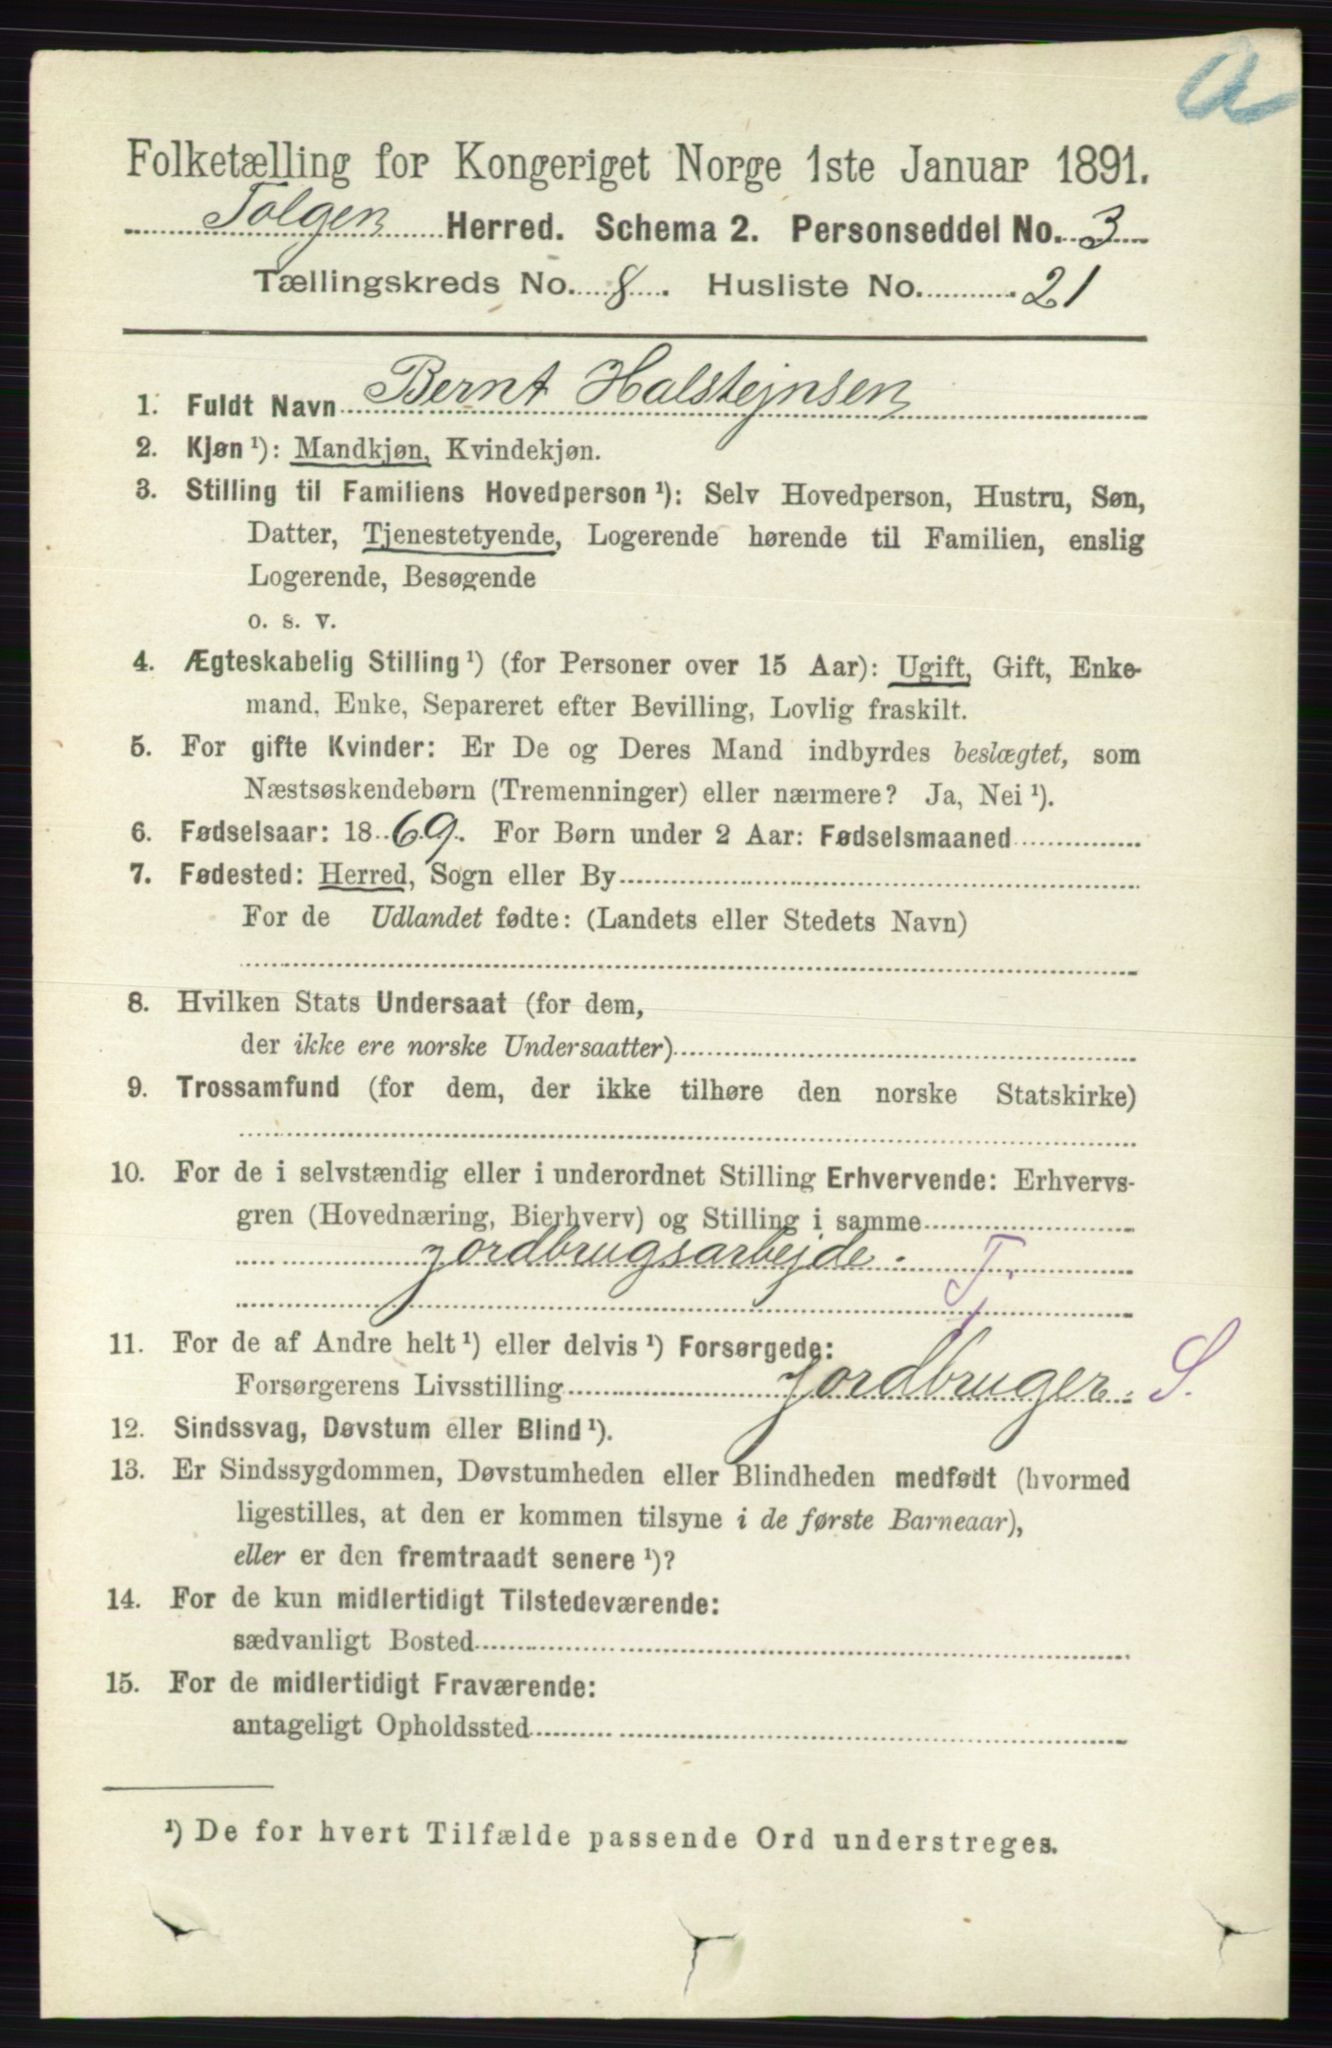 a
Folketælling for Kongeriget Norge 1ste Januar 1891.
Tolgen Herred. Schema 2. Personseddel No. 3
Tællingskreds No. 8. Husliste No. 21
1. Fuldt Navn Bernt Halstejnsen
2. Kjøn ¹): Mandkjøn, Kvindekjøn.
3. Stilling til Familiens Hovedperson ¹): Selv Hovedperson, Hustru, Søn,
Datter, Tjenestetyende, Logerende hørende til Familien, enslig
Logerende, Besøgende
o. s. v.
4. Ægteskabelig Stilling ¹) (for Personer over 15 Aar): Ugift, Gift, Enke-
mand, Enke, Separeret efter Bevilling, Lovlig fraskilt.
5. For gifte Kvinder: Er De og Deres Mand indbyrdes beslægtet, som
Næstsøskendebørn (Tremenninger) eller nærmere? Ja, Nei ¹).
6. Fødselsaar: 1869. For Børn under 2 Aar: Fødselsmaaned
7. Fødested: Herred, Sogn eller By
For de Udlandet fødte: (Landets eller Stedets Navn)
8. Hvilken Stats Undersaat (for dem,
der ikke ere norske Undersaatter)
9. Trossamfund (for dem, der ikke tilhøre den norske Statskirke)
10. For de i selvstændig eller i underordnet Stilling Erhvervende: Erhvervs-
gren (Hovednæring, Bierhverv) og Stilling i samme
Jordbrugsarbejde. Tj
11. For de af Andre helt ¹) eller delvis ¹) Forsørgede:
Forsørgerens Livsstilling Jordbruger. S.
12. Sindssvag, Døvstum eller Blind ¹).
13. Er Sindssygdommen, Døvstumheden eller Blindheden medfødt (hvormed
ligestilles, at den er kommen tilsyne i de første Barneaar),
eller er den fremtraadt senere ¹)?
14. For de kun midlertidigt Tilstedeværende:
sædvanligt Bosted
15. For de midlertidigt Fraværende:
antageligt Opholdssted
¹) De for hvert Tilfælde passende Ord understreges.